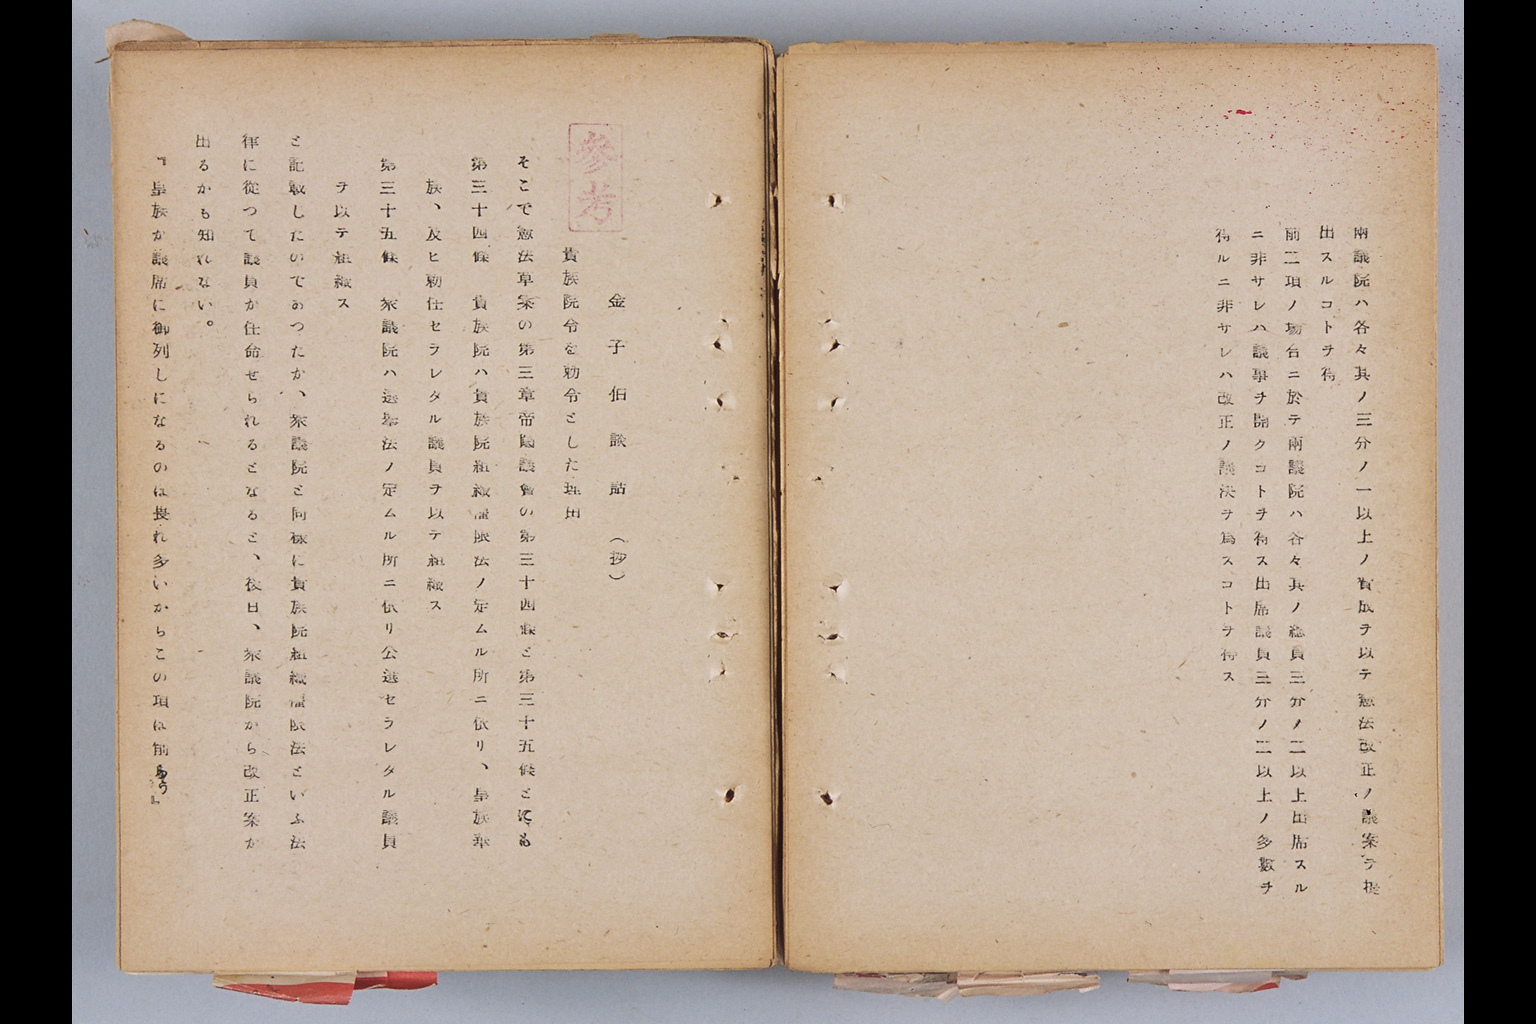 兩議院ハ各々其ノ三分ノ一以上ノ賛成ヲ以テ憲法改正ノ議案ヲ提
出スルコトヲ得
前二項ノ場合ニ於テ兩議院ハ各々其ノ總員三分ノ二以上出席スル
ニ非サレハ議事ヲ開クコトヲ得ス出席議員三分ノ二以上ノ多數ヲ
得ルニ非サレハ改正ノ議決ヲ爲スコトヲ得ス
參考
金子伯談話(抄)
貴族院令を勅令とした理由
そこで憲法草案の第三章帝國議會の第三十四條と第三十五條とにも
第三十四條 貴族院ハ貴族院組織權限法ノ定ムル所ニ依リ、皇族華
族、及ヒ勅任セラレタル議員ヲ以テ組織ス
第三十五條 衆議院ハ選擧法ノ定ムル所ニ依リ公選セラレタル議員
ヲ以テ組織ス
と記載したのであつたが、衆議院と同樣に貴族院組織權限法といふ法
律に從つて議員が任命せられるとなると、後日、衆議院から改正案が
出るかも知れない。
『皇族が議席に御列しになるのは畏れ多いからこの項は削
』